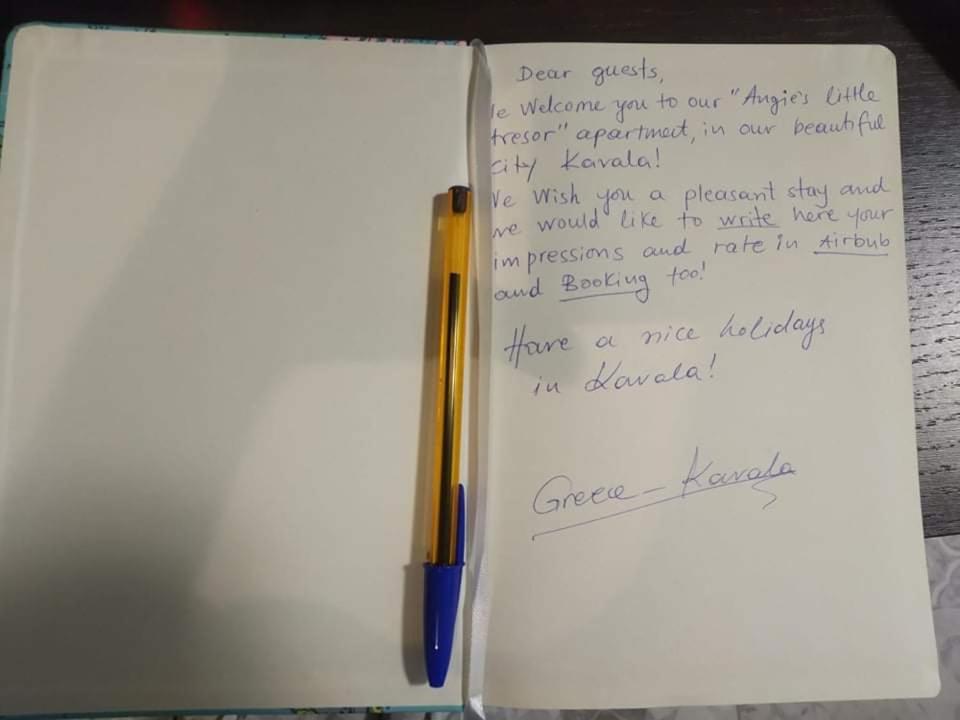 Dear guests,
We Welcome you to our "Angie's little
tresor" apartment, in our beautiful
city Kavala!
We Wish you a pleasant stay and
we would like to write here your
impressions and rate in Airbnb
and Booking too!
Have a nice holidays
in Kavala!
Greece - Kavala